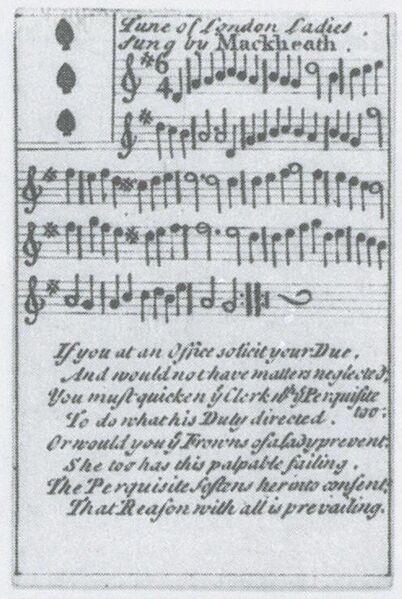 Tune of London Ladies.
Sung by Mackheath.
6
4
If you at an Office solicit your Due,
And would not have matters neglected;
You must quicken yͤ Clerk wᵗʰ yͤ Perquisite too:
To do what his Duty directed.
Or would you yͤ Frowns of a Lady prevent,
She too has this palpable failing,
The Perquisite softens her into consent;
That Reason with all is prevailing.